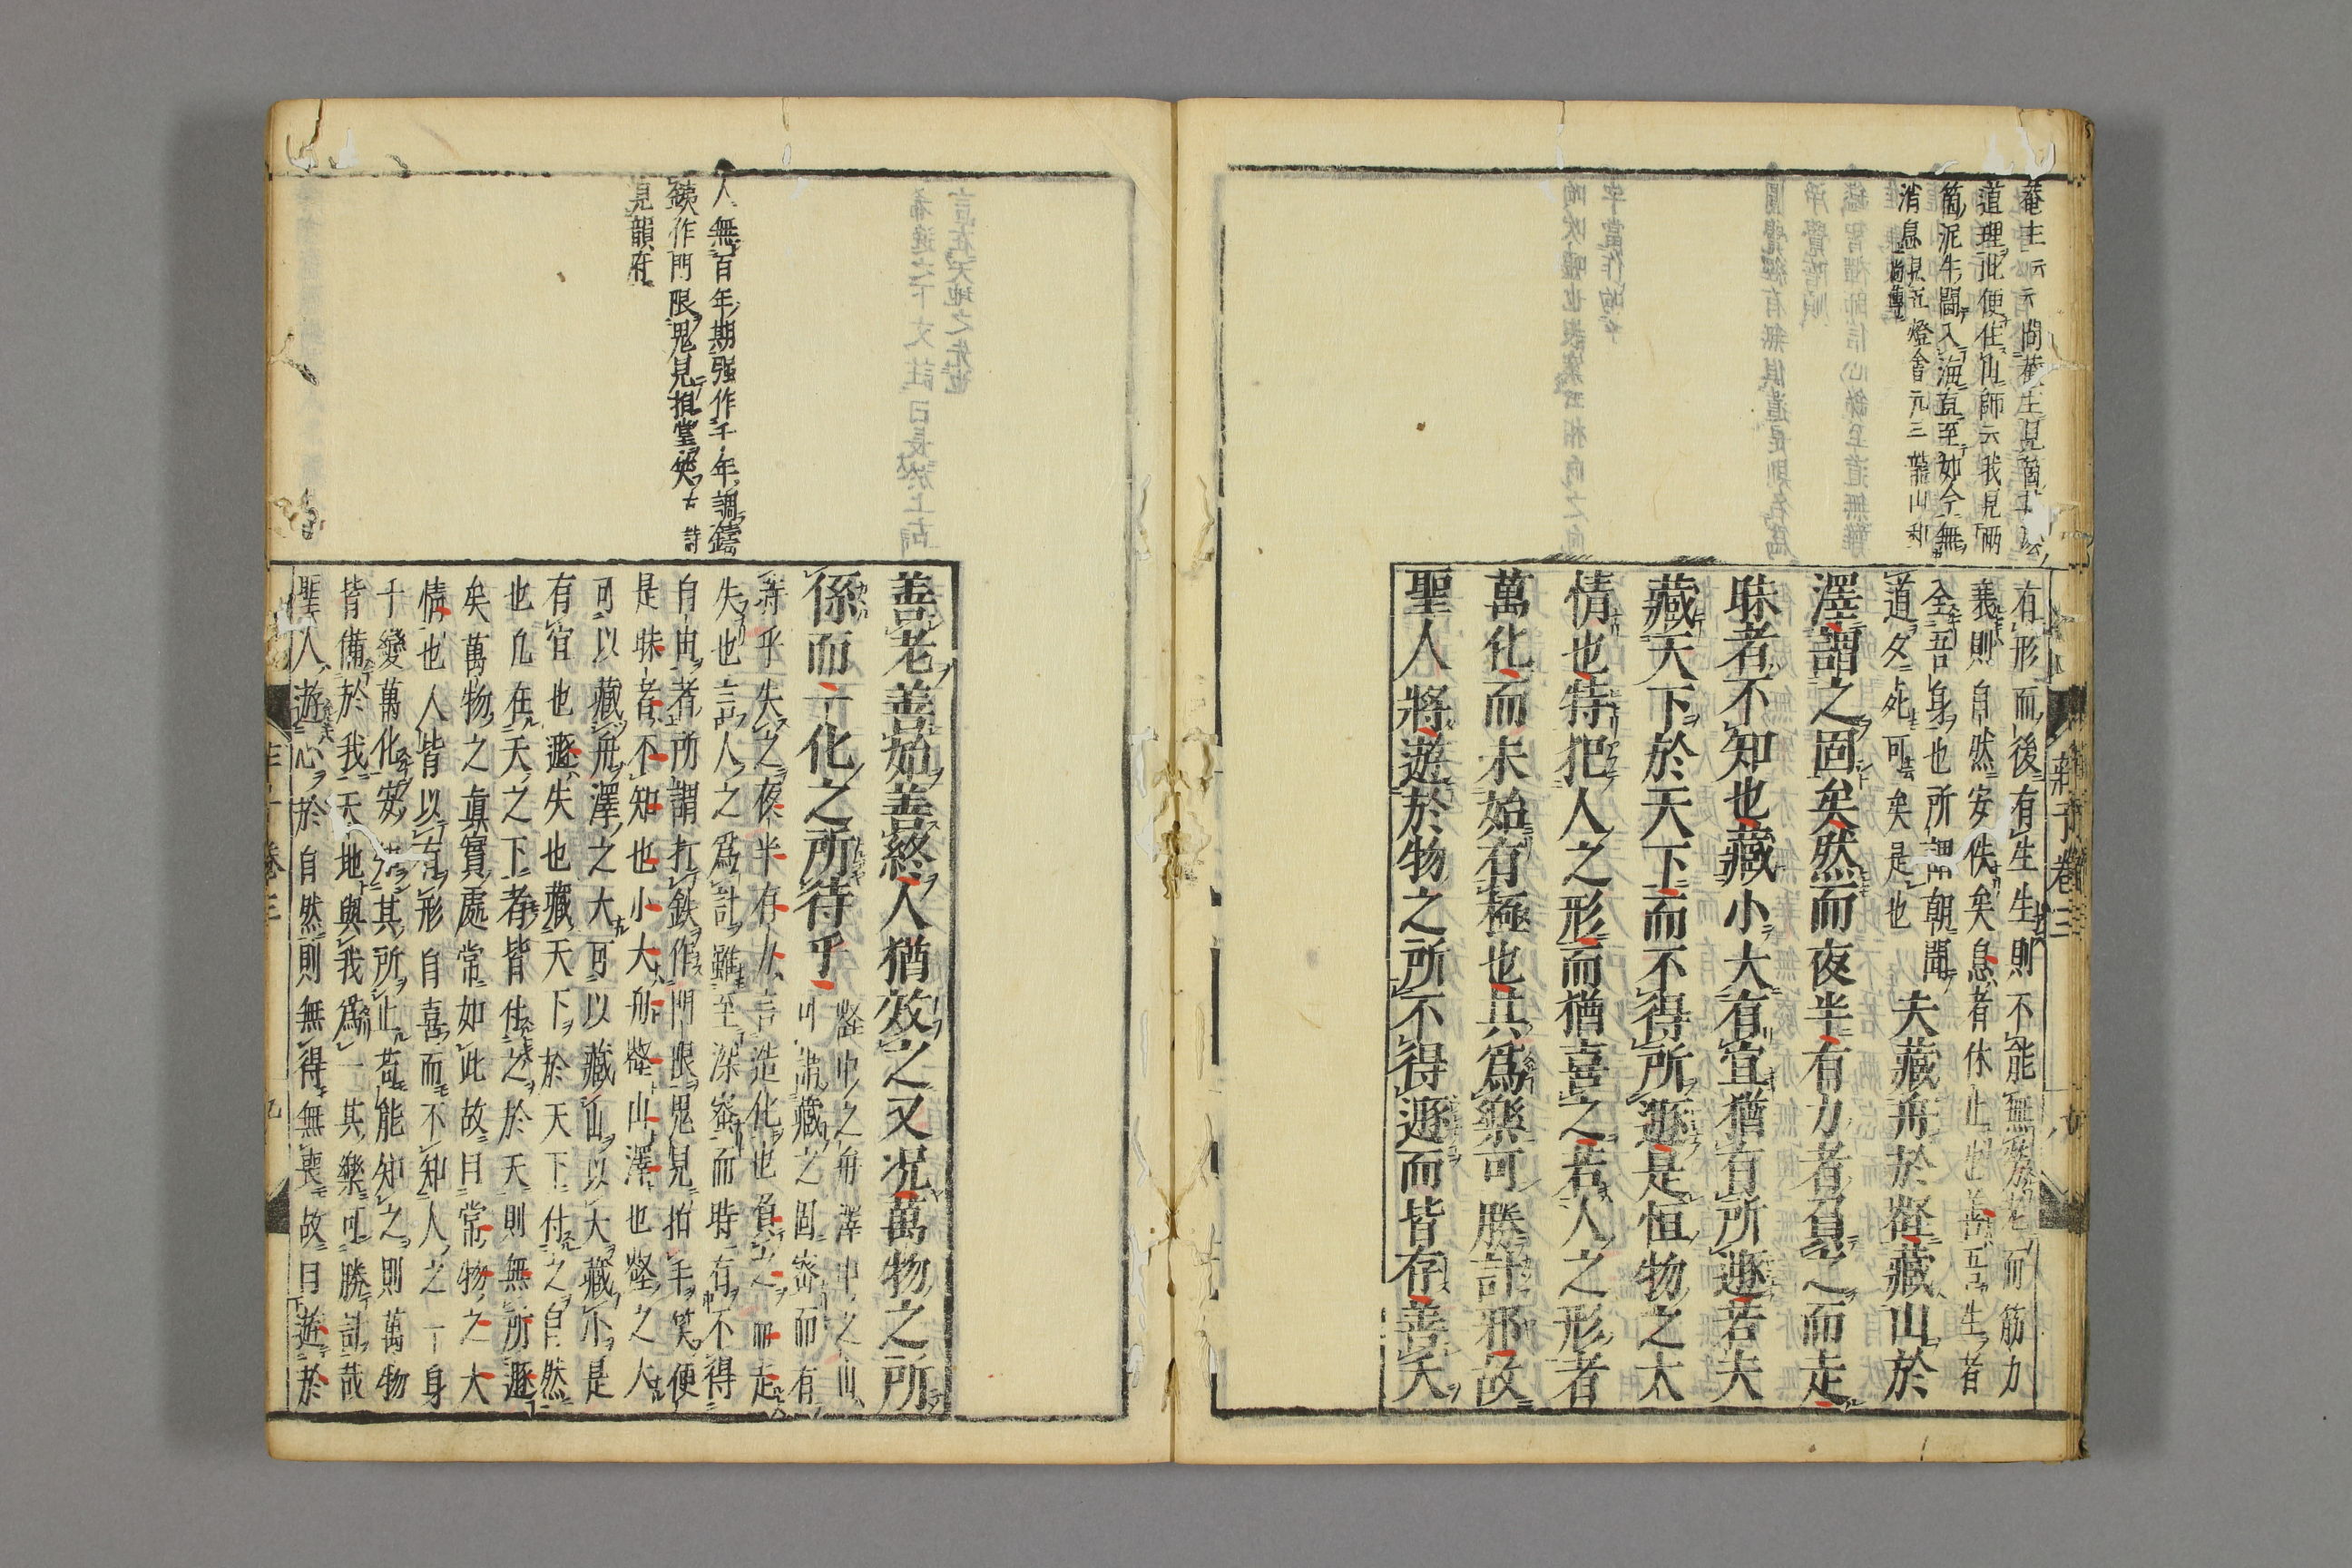 菴主云云問菴主見箇
道理此便住山師云我見兩
箇泥牛鬪入海直至如今無
消息見五燈會元三龍山和
尚傳
有形而後有生生則不能無勞老而筋力
衰則自然安佚矣息者休止也善吾生者
全吾身也所謂朝聞
道夕死可矣是也
夫藏舟於壑藏山於
澤謂之固矣然而夜半有力者負之而走
昧者不知也藏小大有宜猶有所遯若夫
藏天下於天下而不得所遯是恒物之大
情也特犯人之形而猶喜之若人之形者
萬化而未始有極也其爲樂可勝計邪故
聖人將遊於物之所不得遯而皆存善夭
莊子卷三
人無百年期强作千年調鑄
鐵作門限鬼見拍掌笑古詩
見韻府
善老善始善終人猶效之又况萬物之所
係而一化之所待乎
壑中之舟澤中之山
可謂藏之固密而有
時乎失之夜半有力言造化也負之而走
失也言人之爲計雖至深密而時有不得
自由者所謂打鉄作門限鬼見拍手笑便
是昧者不知也小大舟壑山澤也壑之大
可以藏舟澤之大可以藏山以大藏小是
有宜也遯失也藏天下於天下付之自然
也凢在天之下者皆付之於天則無所遯
矣萬物之眞實處常如此故曰常物之大
情也人皆以有形自喜而不知人之一身
千變萬化安其所止苟能知之則萬物
皆備於我天地與我爲一其樂可勝計哉
聖人遊心於自然則無得無喪故曰遊於
莊子卷三
九